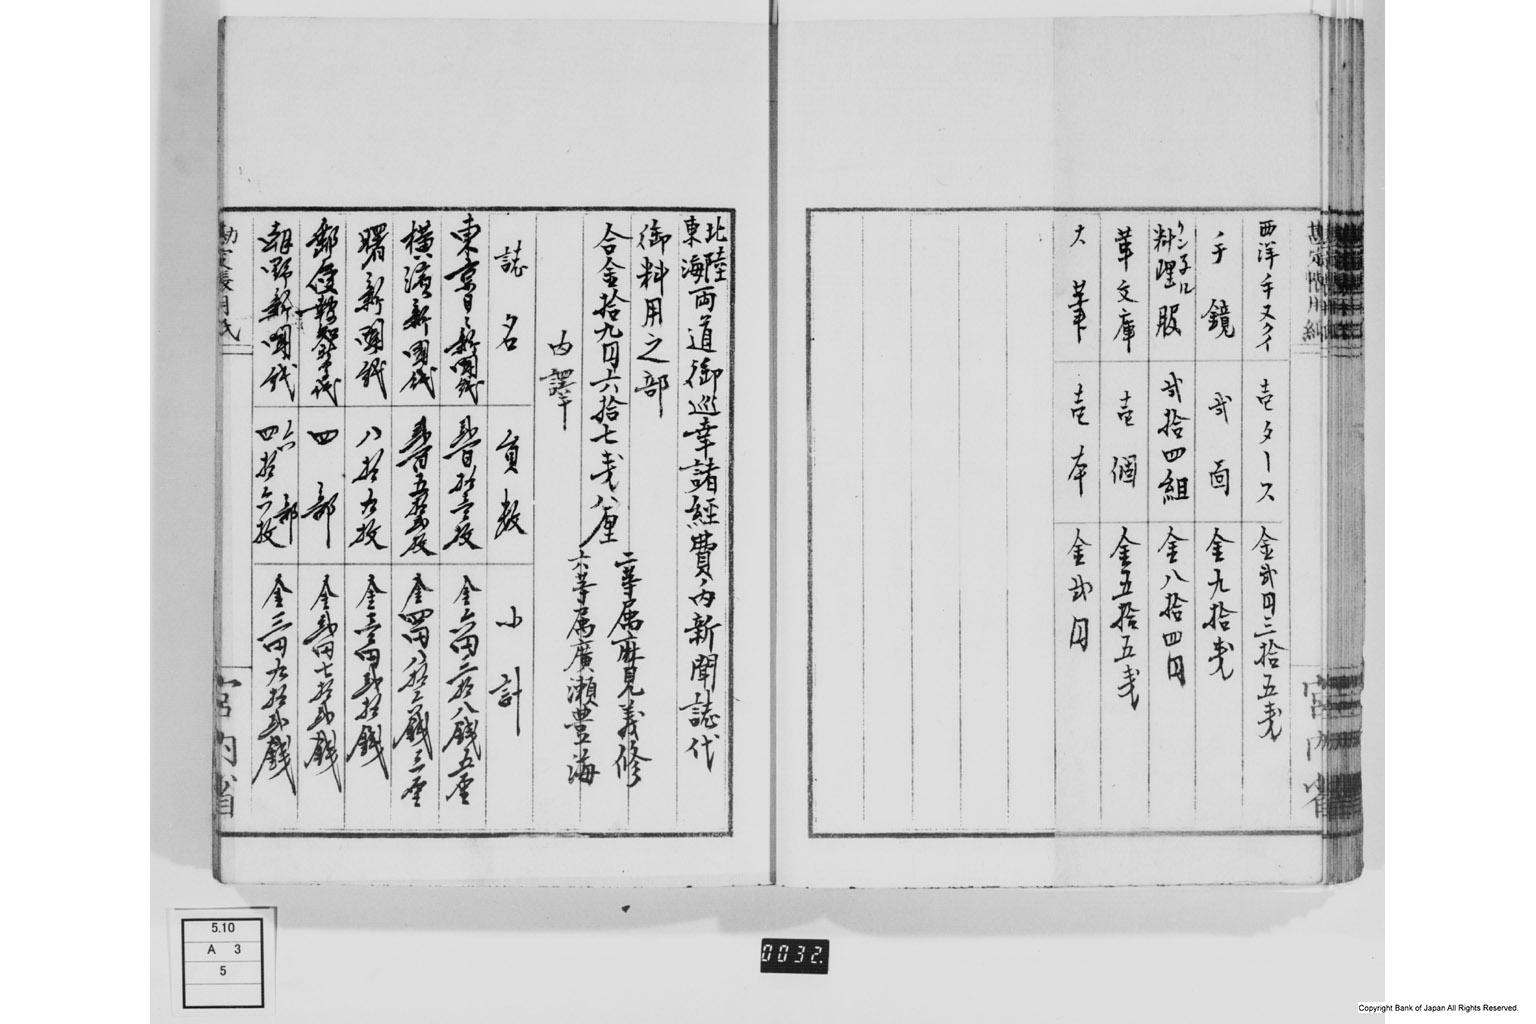 西洋手ヌクイ 壱タース 金弐円三拾五銭
手鏡 弐面 金九拾銭
料理服 弐拾四組 金八拾四円
革文庫 壱個 金五拾五銭
大筆 壱本 金弐円
北陸東海両道御巡幸諸経費ノ内新聞誌代
御料用之部
合金拾九円六拾七銭八厘
二等属麻見義修
六等属廣瀬豊海
内譯
誌名 員数 小計
東京日々新聞代 金六円三拾八銭五厘
横濱新聞代 金四円八拾三銭三厘
曙新聞代 八拾九枚
郵便報知新聞代 四部 金弐円七拾弐銭
朝野新聞代 六部 四拾六枚 金三円九拾弐銭
宮内省
宮内省
5.10
A 3
5
0032.
Copyright Bank of Japan All Rights Reserved.